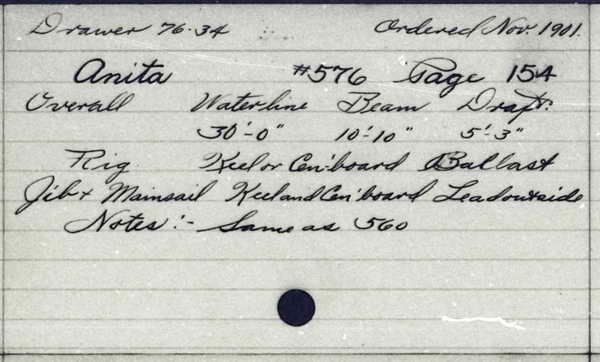 Drawer 76-34 Ordered Nov. 1901.
Anita #576 Page 154
Overall Waterline Beam Draft:
30'-0" 10'-10" 5'-3"
Rig Keel or Cen'board Ballast
Jib + Mainsail Keel and Cen'board Lead outside
Notes:- Same as 560